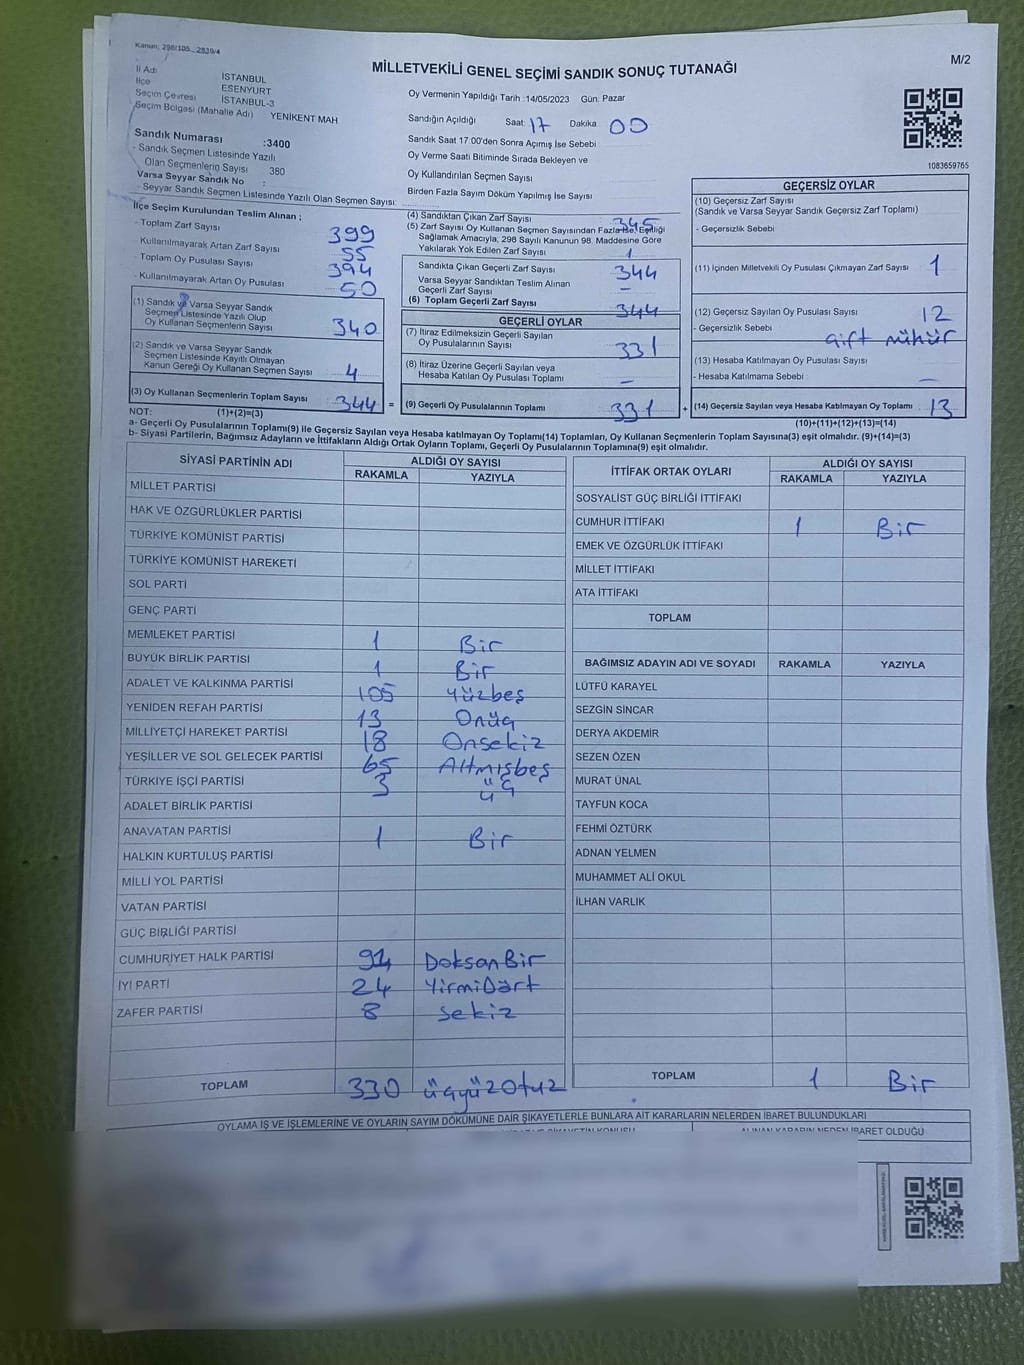 Kanun; 298/105_ 2839/4
MİLLETVEKİLİ GENEL SEÇİMİ SANDIK SONUÇ TUTANAĞI
M/2
İl Adı İSTANBUL
İlçe ESENYURT
Seçim Çevresi İSTANBUL-3
Seçim Bölgesi (Mahalle Adı) YENİKENT MAH
Sandık Numarası :3400
- Sandık Seçmen Listesinde Yazılı
Olan Seçmenlerin Sayısı 380
Varsa Seyyar Sandık No :
- Seyyar Sandık Seçmen Listesinde Yazılı Olan Seçmen Sayısı:
Oy Vermenin Yapıldığı Tarih :14/05/2023 Gün: Pazar
Sandığın Açıldığı Saat: 17 Dakika 00
Sandık Saat 17:00'den Sonra Açımış İse Sebebi :
Oy Verme Saati Bitiminde Sırada Bekleyen ve
Oy Kullandırılan Seçmen Sayısı :
Birden Fazla Sayım Döküm Yapılmış İse Sayısı :
1083659765
İlçe Seçim Kurulundan Teslim Alınan ;
- Toplam Zarf Sayısı 399
- Kullanılmayarak Artan Zarf Sayısı 55
- Toplam Oy Pusulası Sayısı 394
- Kullanılmayarak Artan Oy Pusulası 50
(1) Sandık ve Varsa Seyyar Sandık
Seçmen Listesinde Yazılı Olup
Oy Kullanan Seçmenlerin Sayısı 340
(2) Sandık ve Varsa Seyyar Sandık
Seçmen Listesinde Kayıtlı Olmayan
Kanun Gereği Oy Kullanan Seçmen Sayısı 4
(3) Oy Kullanan Seçmenlerin Toplam Sayısı 344 =
(4) Sandıktan Çıkan Zarf Sayısı 345
(5) Zarf Sayısı Oy Kullanan Seçmen Sayısından Fazla İse, Eşitliği
Sağlamak Amacıyla, 298 Sayılı Kanunun 98. Maddesine Göre
Yakılarak Yok Edilen Zarf Sayısı 1
Sandıkta Çıkan Geçerli Zarf Sayısı 344
Varsa Seyyar Sandıktan Teslim Alınan
Geçerli Zarf Sayısı –
(6) Toplam Geçerli Zarf Sayısı 344
GEÇERLİ OYLAR
(7) İtiraz Edilmeksizin Geçerli Sayılan
Oy Pusulalarının Sayısı 331
(8) İtiraz Üzerine Geçerli Sayılan veya
Hesaba Katılan Oy Pusulası Toplamı –
(9) Geçerli Oy Pusulalarının Toplamı 331 +
GEÇERSİZ OYLAR
(10) Geçersiz Zarf Sayısı
(Sandık ve Varsa Seyyar Sandık Geçersiz Zarf Toplamı)
- Geçersizlik Sebebi
(11) İçinden Milletvekili Oy Pusulası Çıkmayan Zarf Sayısı 1
(12) Geçersiz Sayılan Oy Pusulası Sayısı 12
- Geçersizlik Sebebi : çift mühür
(13) Hesaba Katılmayan Oy Pusulası Sayısı
- Hesaba Katılmama Sebebi : –
(14) Geçersiz Sayılan veya Hesaba Katılmayan Oy Toplamı 13
NOT: (1)+(2)=(3) (10)+(11)+(12)+(13)=(14)
a- Geçerli Oy Pusulalarının Toplamı(9) ile Geçersiz Sayılan veya Hesaba katılmayan Oy Toplamı(14) Toplamları, Oy Kullanan Seçmenlerin Toplam Sayısına(3) eşit olmalıdır. (9)+(14)=(3)
b- Siyasi Partilerin, Bağımsız Adayların ve İttifakların Aldığı Ortak Oyların Toplamı, Geçerli Oy Pusulalarının Toplamına(9) eşit olmalıdır.
SİYASİ PARTİNİN ADI ALDIĞI OY SAYISI
RAKAMLA YAZIYLA
MİLLET PARTİSİ
HAK VE ÖZGÜRLÜKLER PARTİSİ
TÜRKİYE KOMÜNİST PARTİSİ
TÜRKİYE KOMÜNİST HAREKETİ
SOL PARTİ
GENÇ PARTİ
MEMLEKET PARTİSİ 1 Bir
BÜYÜK BİRLİK PARTİSİ 1 Bir
ADALET VE KALKINMA PARTİSİ 105 Yüzbeş
YENİDEN REFAH PARTİSİ 13 Onüç
MİLLİYETÇİ HAREKET PARTİSİ 18 Onsekiz
YEŞİLLER VE SOL GELECEK PARTİSİ 65 Altmışbeş
TÜRKİYE İŞÇİ PARTİSİ 3 üç
ADALET BİRLİK PARTİSİ
ANAVATAN PARTİSİ 1 Bir
HALKIN KURTULUŞ PARTİSİ
MİLLİ YOL PARTİSİ
VATAN PARTİSİ
GÜÇ BİRLİĞİ PARTİSİ
CUMHURİYET HALK PARTİSİ 91 Doksan Bir
İYİ PARTİ 24 YirmiDört
ZAFER PARTİSİ 8 Sekiz
TOPLAM 330 üçyüzotuz
İTTİFAK ORTAK OYLARI ALDIĞI OY SAYISI
RAKAMLA YAZIYLA
SOSYALİST GÜÇ BİRLİĞİ İTTİFAKI
CUMHUR İTTİFAKI 1 Bir
EMEK VE ÖZGÜRLÜK İTTİFAKI
MİLLET İTTİFAKI
ATA İTTİFAKI
TOPLAM
BAĞIMSIZ ADAYIN ADI VE SOYADI RAKAMLA YAZIYLA
LÜTFÜ KARAYEL
SEZGİN SİNCAR
DERYA AKDEMİR
SEZEN ÖZEN
MURAT ÜNAL
TAYFUN KOCA
FEHMİ ÖZTÜRK
ADNAN YELMEN
MUHAMMET ALİ OKUL
İLHAN VARLIK
TOPLAM 1 Bir
OYLAMA İŞ VE İŞLEMLERİNE VE OYLARIN SAYIM DÖKÜMÜNE DAİR ŞİKAYETLERLE BUNLARA AİT KARARLARIN NELERDEN İBARET BULUNDUKLARI
ALINAN KARARIN NEDEN İBARET OLDUĞU